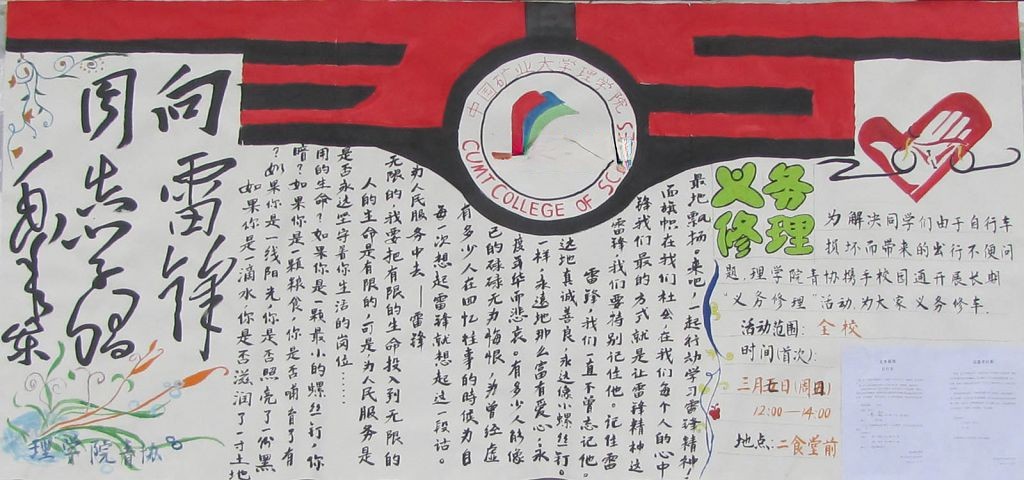 向雷锋
同志学习
毛泽东
理学院青协
中国矿业大学理学院
CUMT COLLEGE OF
如果你是一滴水,你是否滋润了一寸土地
?如果你是一线阳光,你是否照亮了一份黑
暗?如果你是一颗粮食,你是否哺育了有
用的生命?如果你是一颗最小的螺丝钉,你
是否永远坚守着你生活的岗位……
人的生命是有限的,可是,为人民服务是
无限的,我要把有限的生命投入到无限的
为人民服务中去——雷锋
每一次想起雷锋就想起这一段话。
有多少人在回忆往事的时候为自
己的碌碌无为悔恨,为曾经虚
度年华而悲哀。有多少人能像
一样,永远地那么富有爱心,永
远地真诚善良,永远像小螺丝钉。
雷锋,我们一直不曾忘记他。
雷锋,我们要特别记住他。记住雷
锋我们最的方式就是让雷锋精神这
面旗帜在我们社会,在我们每个人的心中
最地飘扬。来吧,一起行动学习雷锋精神!
义务
修理
为解决同学们由于自行车
损坏而带来的出行不便问
题,理学院青协携手校园通开展长期
"义务修理"活动,为大家义务修车.
活动范围:全校
时间(首次):
三月五日(周日)
12:00—14:00
地点:二食堂前